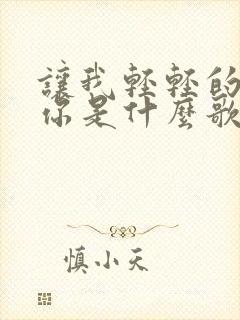 讓我輕輕的
你是什麼歌
慎小天